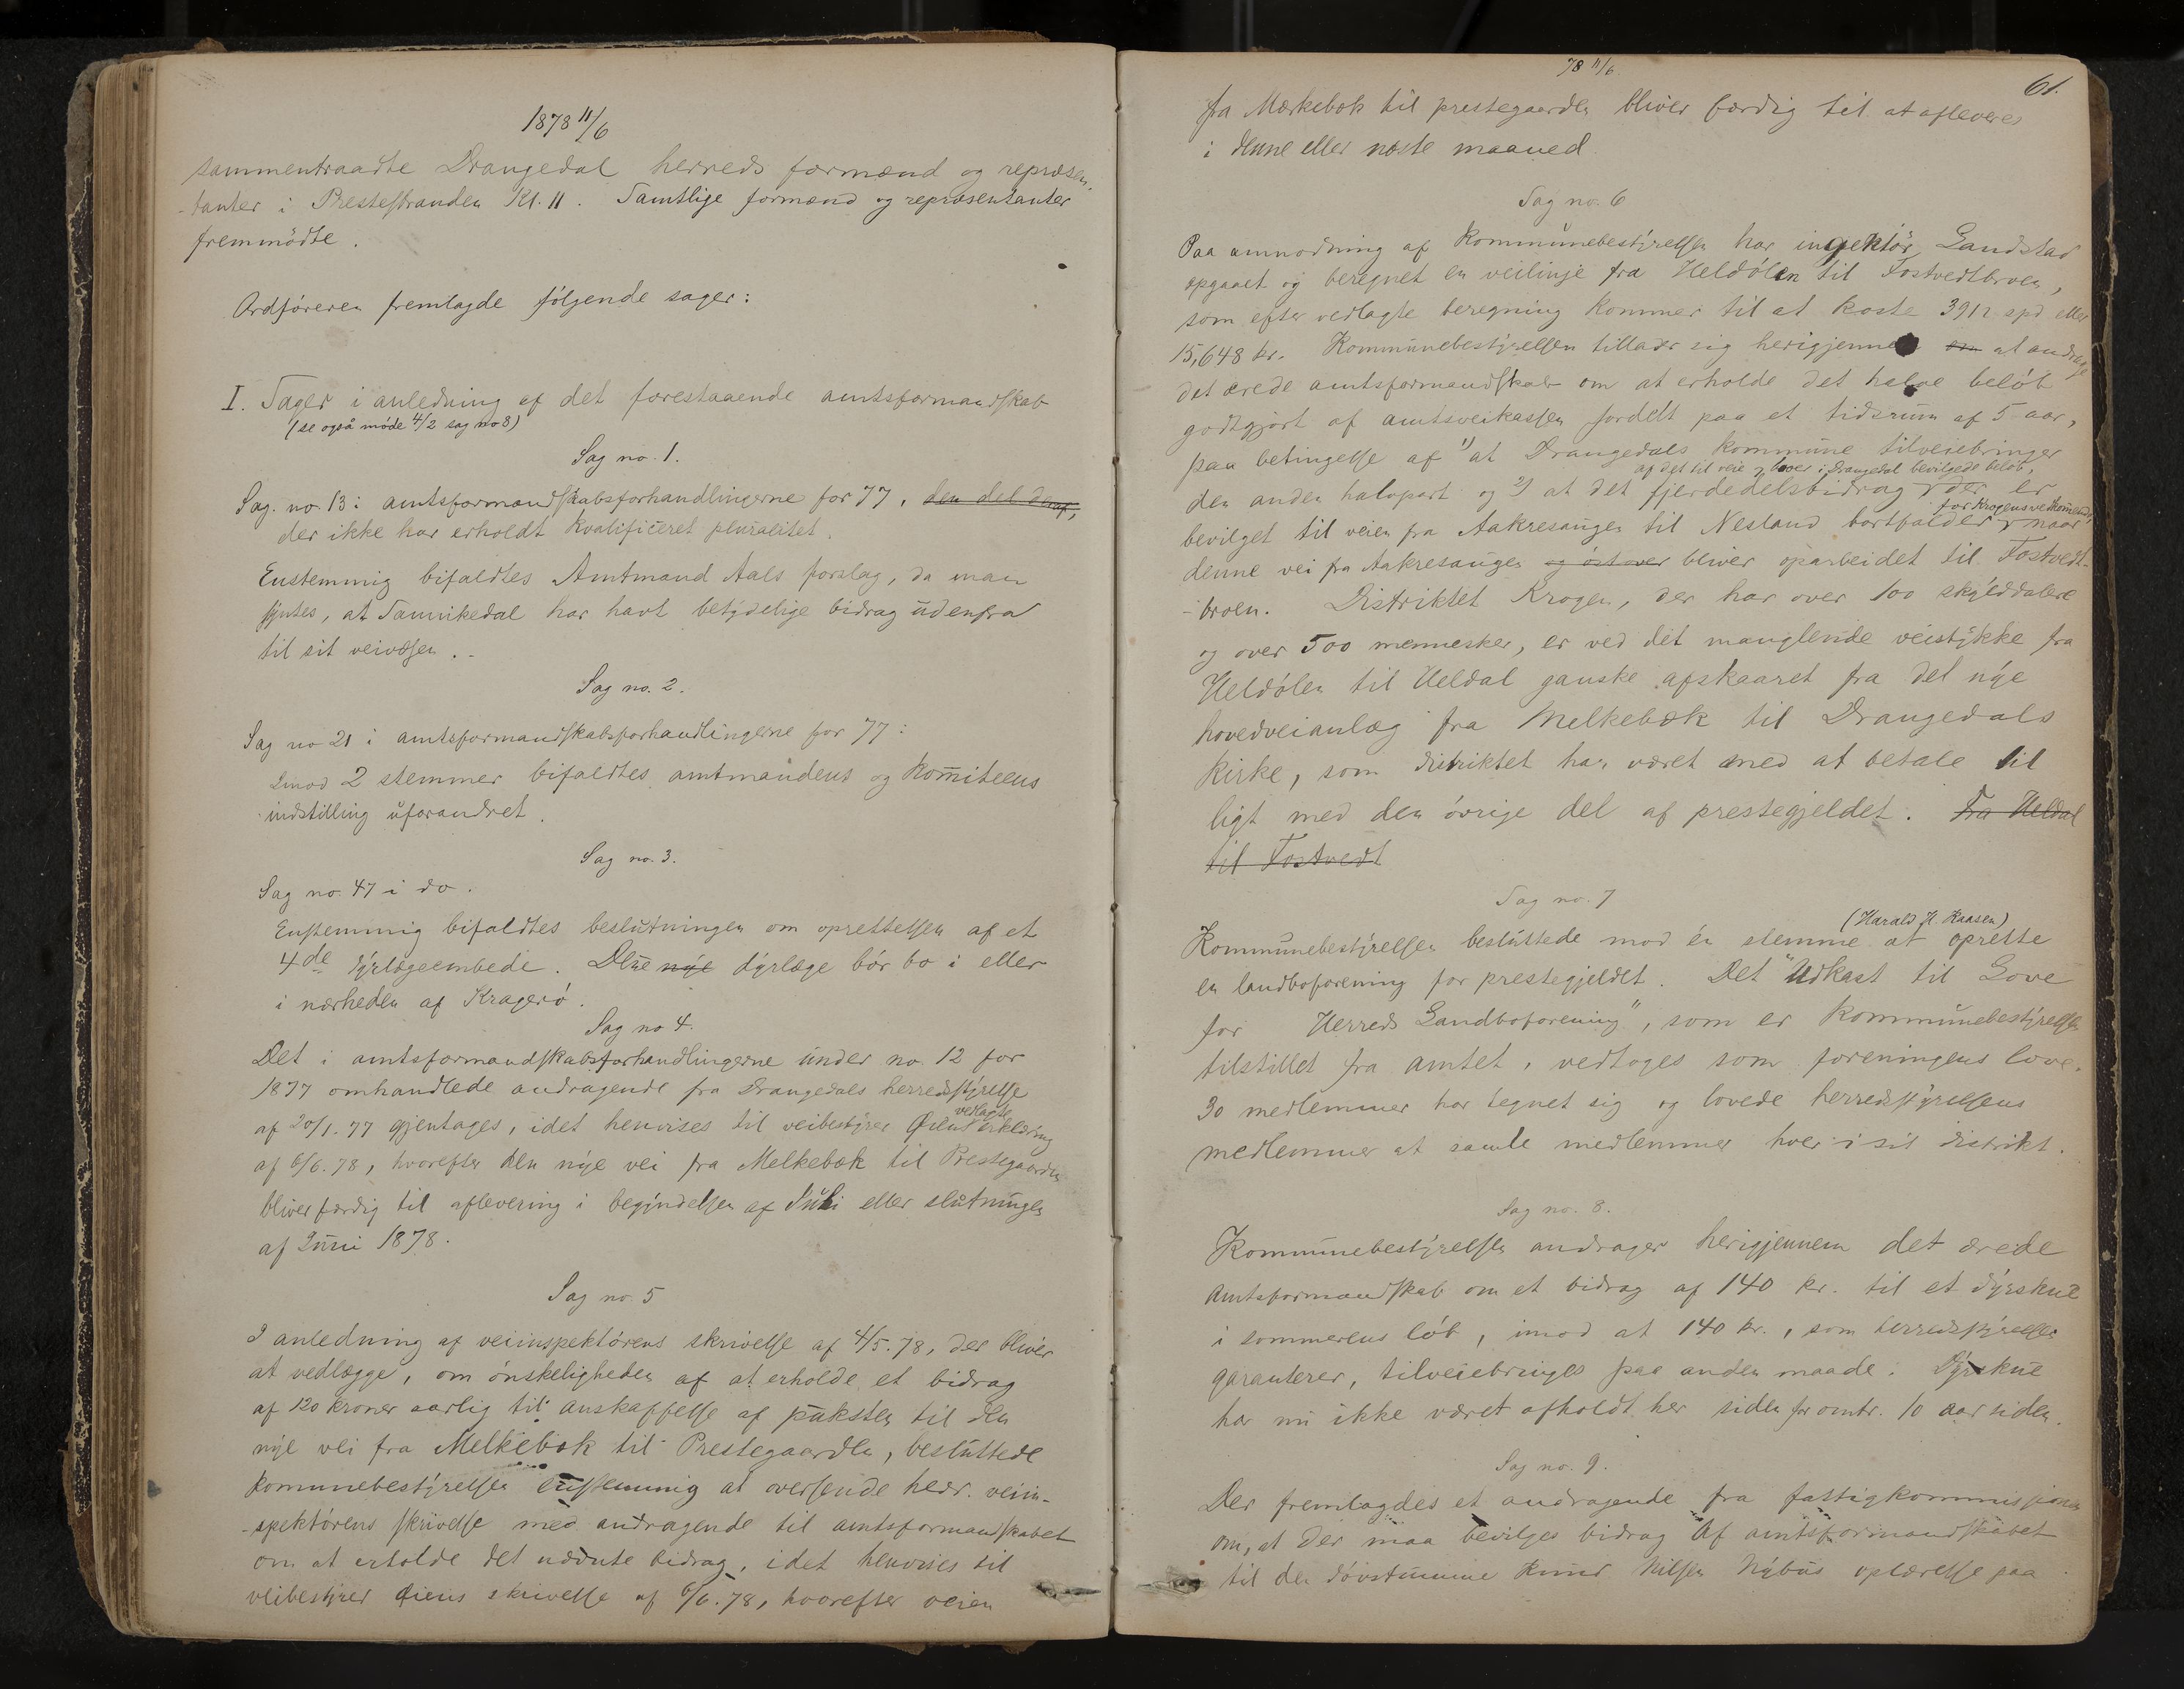 1878 11/6
sammentraadte Drangedal herreds formænd og repræsen-
-tanter i Prestestranden Kl. 11. Samtlige formænd og repræsentanter
fremmödte.
Ordföreren fremlagde fölgende sager:
I. Sager i anledning af det forestaaende amtsformandskab
(se også möde 4/2 sag no 8)
Sag no. 1.
Sag. no. 13 i amtsformandskabsforhandlingerne for 77, den del deraf,
der ikke har erholdt kvalificeret pluralitet.
Enstemmig bifaldtes Amtmand Aals forslag, da man
syntes, at Sannikedal har havt betydelige bidrag udenfra
til sit veivæsen.-
Sag no. 2.
Sag no 21 i amtsformandskabsforhandlingerne for 77:
Imod 2 stemmer bifaldtes amtmandens og komiteens
indstilling uforandret.
Sag no. 3.
Sag no. 47 i do.
Enstemmig bifaldtes beslutningen om oprettelsen af et
4de dyrlægeembede. Denne nye dyrlæge bör bo i eller
i nærheden af Kragerö.
Sag no 4.
Det i amtsformandskabsforhandlingerne under no. 12 for
1877 omhandlede andragende fra Drangedals herredsstyrelse
af 20/1.77 gjentages, idet henvises til veibestyrer Öiens vedlagte erklæring
af 6/6.78, hvorefter den nye vei fra Melkebæk til Prestegaarden
bliver færdig til aflevering i begyndelsen af Juli eller slutningen
af Juni 1878.
Sag no. 5
I anledning af veiinspektörens skrivelse af 4/5.78, der bliver
at vedlægge, om önskeligheden af at erholde et bidrag
af 120 kroner aarlig til anskaffelse af puksten til den
nye vei fra Melkebæk til Prestegaarden, besluttede
kommunebestyrelsen enstemmig at oversende hedr. veiin-
-spektörens skrivelse med andragende til amtsformandskabet
om at erholde det nævnte bidrag, idet henvises til
veibestyrer Öiens skrivelse af 6/6.78, hvorefter veien
78 11/6
61.
fra Mærkebæk til prestegaarden bliver færdig til at afleveres
i denne eller næste maaned
Sag no. 6
Paa anmodning af kommunebestyrelsen har ingeniör Landstad
opgaaet og beregnet en veilinje fra Heldölen til Tostvedtbroen,
som efter vedlagte beregning kommer til at koste 3912 spd eller
15,648 kr. Kommunebestyrelsen tillader sig herigjennem om at andrage
det ærede amtsformandskab om at erholde det halve belöb
godtgjort af amtsveikassen fordelt paa et tidsrum af 5 aar,
paa betingelse af 1) at Drangedals kommune tilveiebringer
af det til veie og broer i Drangedal bevilgede belöb,
den anden halvpart og 2) at det fjerdedelsbidrag der er
for Krogens vedkommende,
bevilget til veien fra Aakresaugen til Nesland bortfalder naar
denne vei fra Aakresaugen og östover bliver oparbeidet til Tostvedt-
-broen. Distriktet Krogen, der har over 100 skylddalere
og over 500 mennesker, er ved det manglende veistykke fra
Heldölen til Heldal ganske afskaaret fra det nye
hovedveianlæg fra Melkebæk til Drangedals
kirke, som distriktet har været med at betale til
ligt med den övrige del af prestegjeldet. Fra Heldal
til Tostvedt
Sag no. 7
(Harald H. Kaasen)
Kommunebestyrelsen besluttede mod én stemme at oprette
en landboforening for prestegjeldet. Det "Udkast til Love
for Herreds Landboforening", som er kommunebestyrelsen
tilstillet fra amtet, vedtoges som foreningens love.
30 medlemmer har tegnet sig og lovede herredsstyrelsens
medlemmer at samle medlemmer hver i sit distrikt.
Sag no. 8.
Kommunebestyrelsen andrager herigjennem det ærede
Amtsformandskab om et bidrag af 140 kr. til et dyrskue
i sommerens löb, imod at 140 kr., som herredsstyrelsen
garanterer, tilveiebringes paa anden maade. Dyrskue
har nu ikke været afholdt her siden for omtr. 10 aar siden.
Sag no. 9.
Der fremlagdes et andragende fra fattigkommissionen
om, at der maa bevilges bidrag af amtsformandskabet
til den dövstumme Knud Nilsen Nybus oplærelse paa